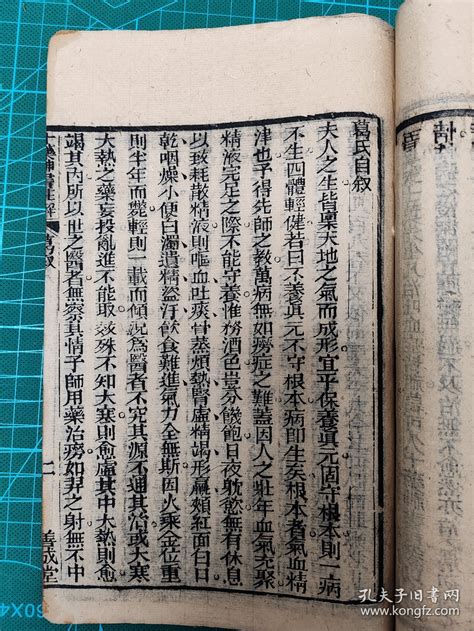 葛氏自叙
夫人之生皆稟天地之氣而成形宜乎保養眞元固守根本則一病
不生四體輕健若曰不養眞元不守根本病即生矣根本者氣血精
津也予得先師之教萬病無如癆症之難蓋因人之壯年血氣充聚
精液完足之際不能守養惟務酒色豈分饑飽日夜躭慾無有休息
以致耗散精液則嘔血吐痰骨蒸煩熱腎虛精竭形羸頰紅面白口
乾咽燥小便白濁遺精盜汗飲食難進氣力全無斯因火乘金位重
則半年而斃輕則一載而傾況爲醫者不究其源不通其治或大寒
大熱之藥妄投亂進不能取效殊不知大寒則愈虛其中大熱則愈
竭其內所以世之醫者無察其情予師用藥治癆如羿之射無不中
葛叙
二
善成堂
孔夫子旧书网
www.kongfz.com